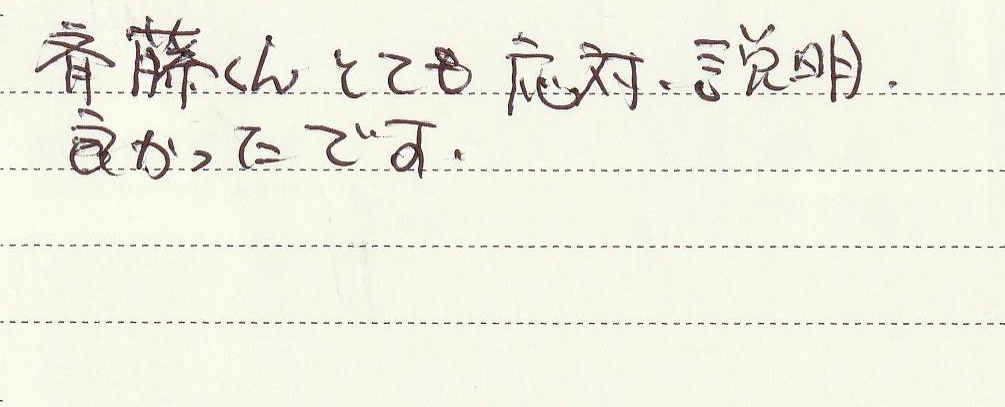 斉藤くんとても応対、説明、
良かったです。